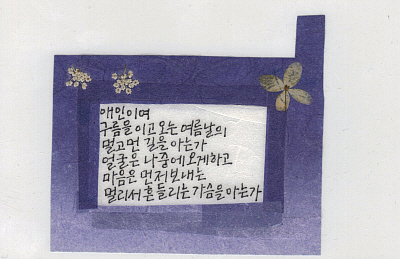 애인이여
구름을 이고 오는 여름날의
멀고 먼 길을 아는가
얼굴은 나중에 오게하고
마음은 먼저 보내는
멀리서 흔들리는 가슴을 아는가